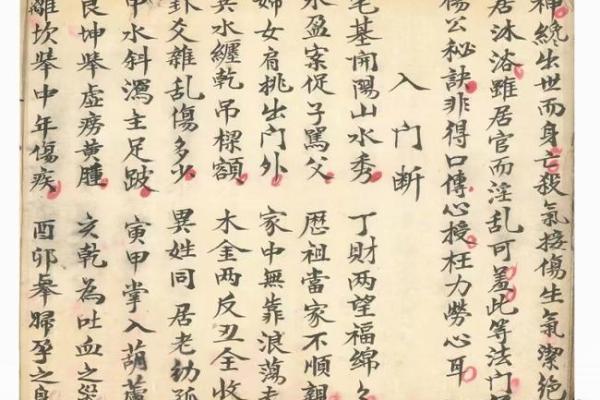 神纔出世而身亡殺氣接傷生氣潔絶
居沐浴雖居官而淫乱可羞此等法門
楊公秘訣非得口傳心授枉力勞心耳
入門断
宅基開陽山水秀 丁財两望福綿々
水盈案促子罵父 歴祖當家不順親
婦女肩挑出門外 家中無靠浪蕩
水纏乾吊樑額 木金两反丑全收
卦爻雜乱傷多少 異姓同居老幼孤
申水斜瀉主足跛 寅甲掌入葫蘆
艮坤舉虛癆黃腫 亥乾為吐血之災
離坎舉中年傷疾 酉卯舉婦孕之